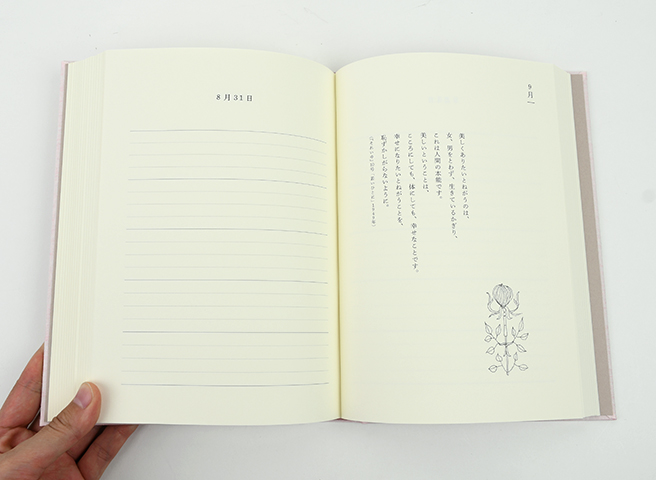 8月31日
9月
美しくありたいとねがうのは、
女、男をとわず、生きているかぎり、
これは人間の本能です。
美しいということは、
こころにしても、体にしても、幸せなことです。
幸せになりたいとねがうことを、
恥ずかしがらないように。